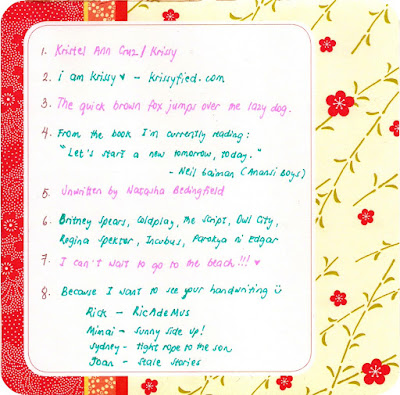 1. Kristel Ann Cruz / Krissy
2. i am krissy ♥ - krissyfied.com
3. The quick brown fox jumps over the lazy dog.
4. From the book I'm currently reading:
"Let's start a new tomorrow, today."
- Neil Gaiman (Anansi Boys)
5. Unwritten by Natasha Bedingfield
6. Britney Spears, Coldplay, The Script, Owl City,
Regina Spektor, Incubus, Parokya ni Edgar
7. I can't wait to go to the beach!!! ♥
8. Because I want to see your handwriting ü
Rick - RicAdeMus
Minai - sunny side up!
Sydney - tight rope to the son
Joan - Stale Stories